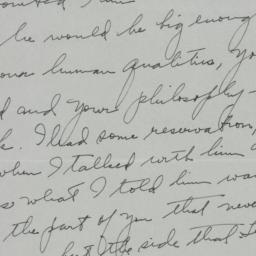 he would be big enoug
human qualities, yo
d and your philosophy —
k. I had some reservation,
when I talked with him
so what I told him was
the part of you that neve
but the side that